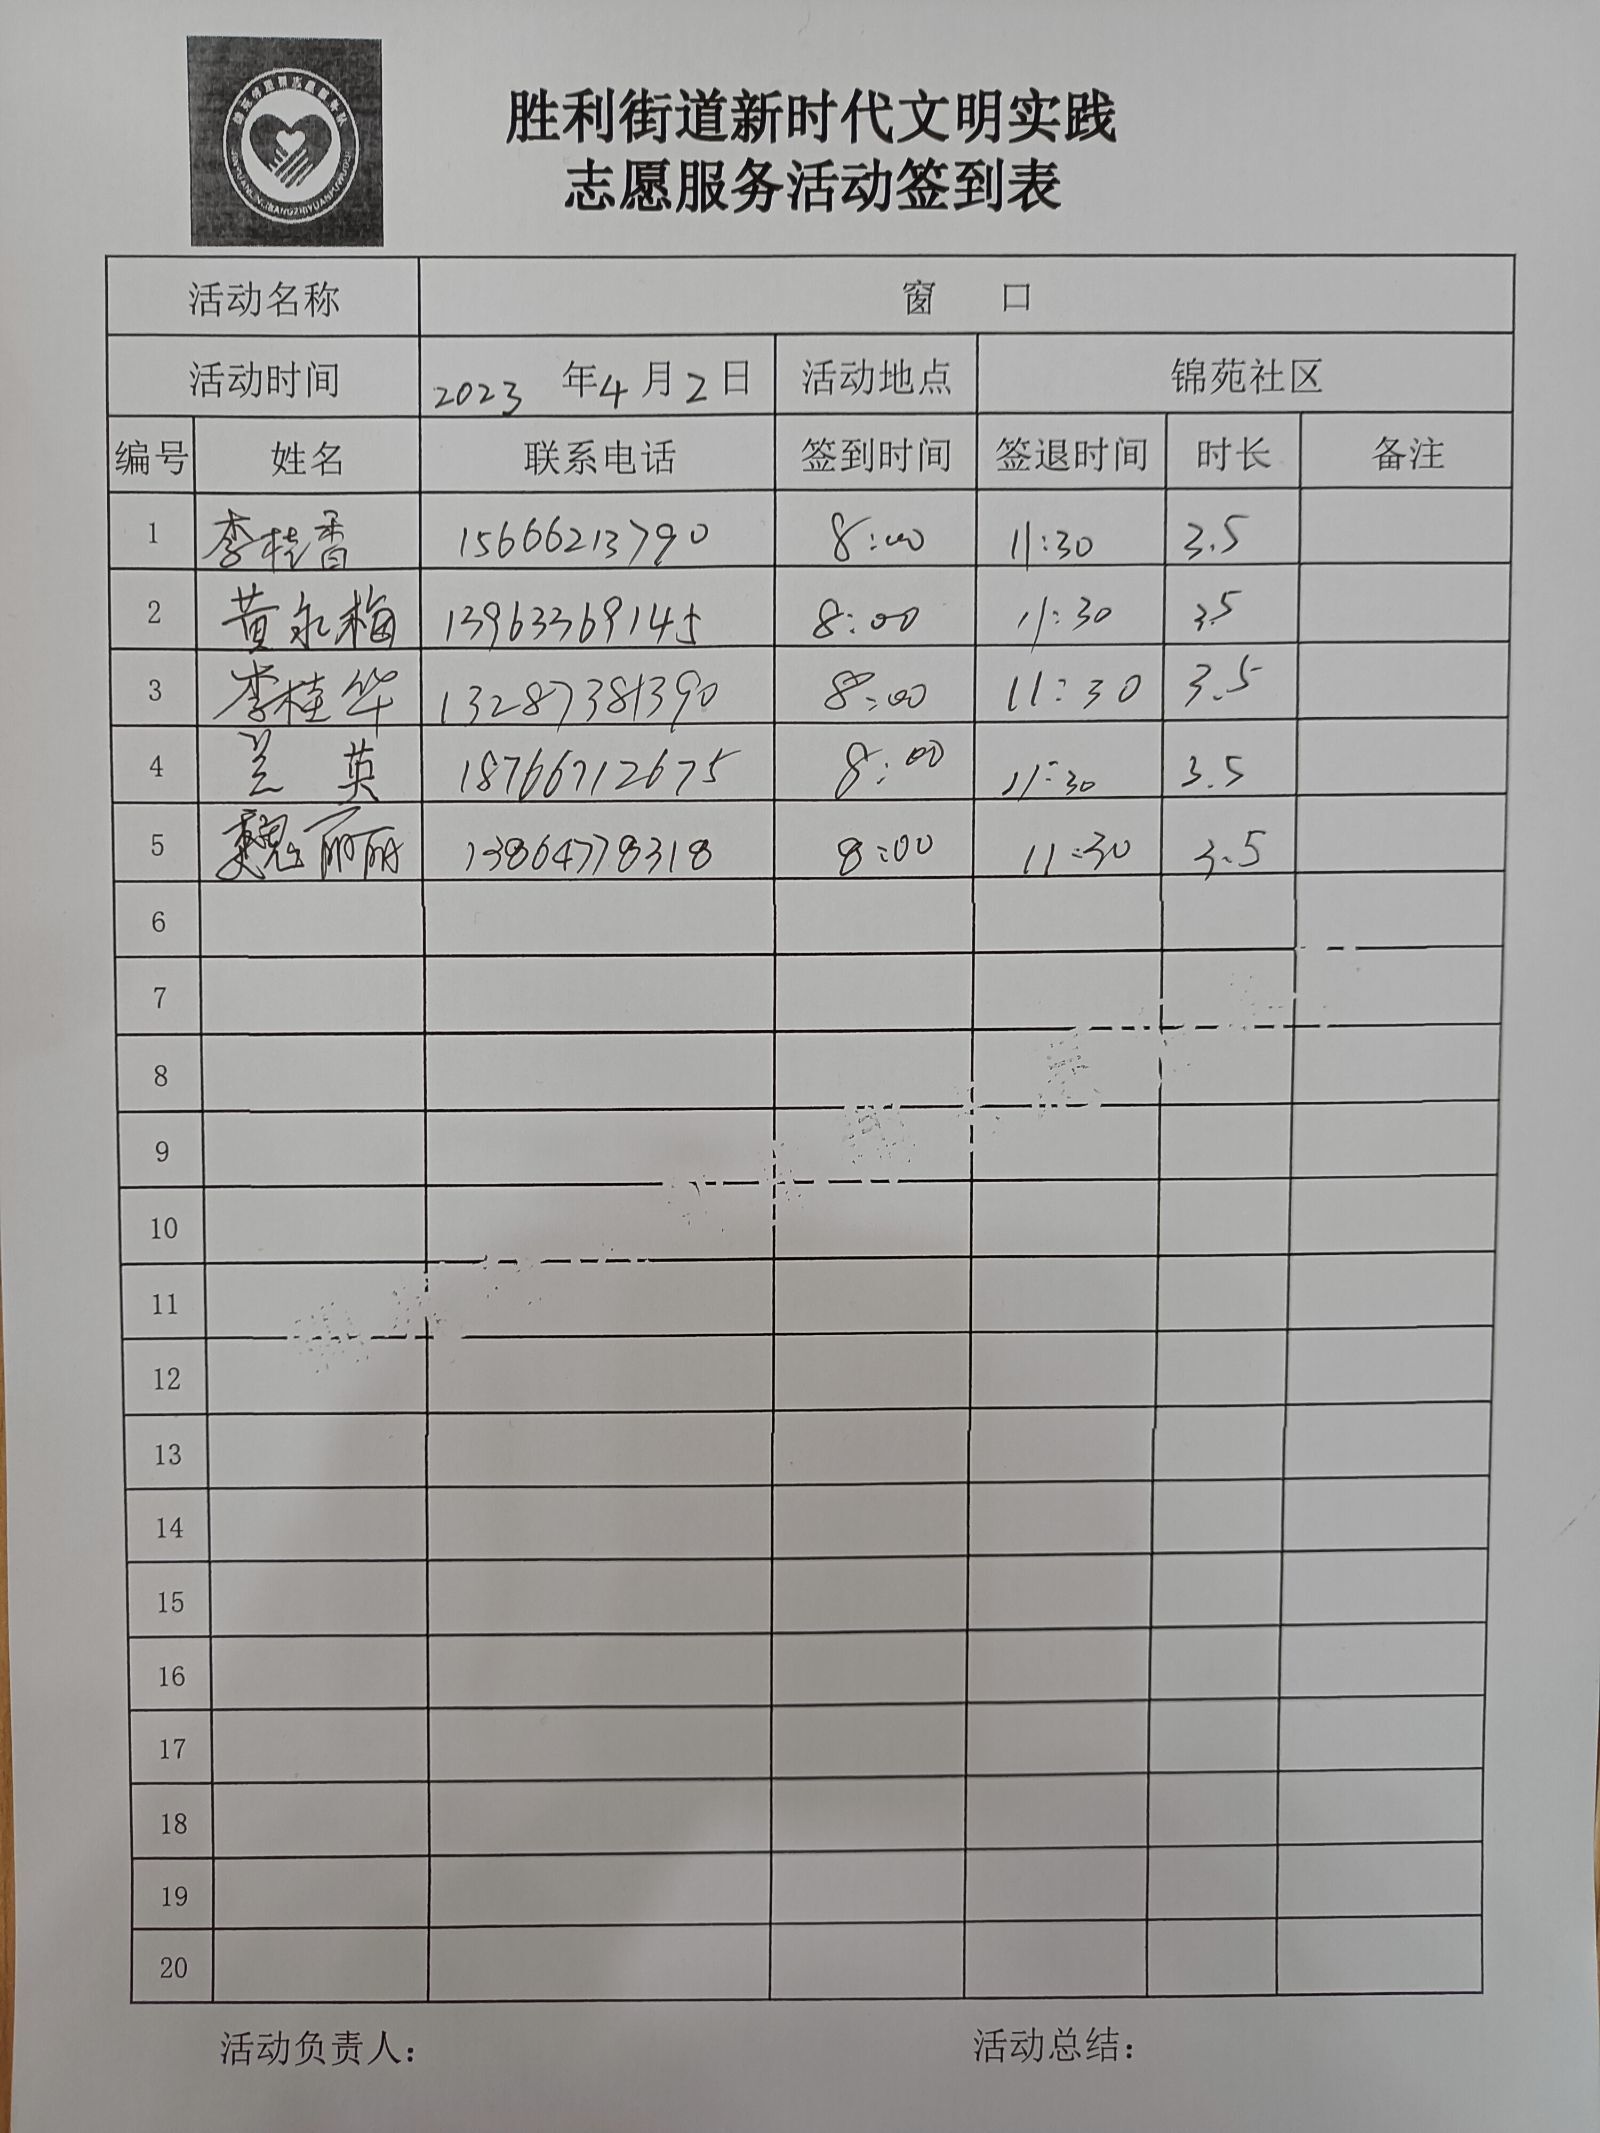 胜利街道新时代文明实践
志愿服务活动签到表
活动名称 窗 口
活动时间 2023 年4月2日 活动地点 锦苑社区
编号 姓名 联系电话 签到时间 签退时间 时长 备注
1 李桂香 15666213790 8:00 11:30 3.5
2 黄永梅 13963369145 8:00 11:30 3.5
3 李桂华 13287381390 8:00 11:30 3.5
4 兰英 18766712675 8:00 11:30 3.5
5 魏丽丽 13864778318 8:00 11:30 3.5
6
7
8
9
10
11
12
13
14
15
16
17
18
19
20
活动负责人： 活动总结：